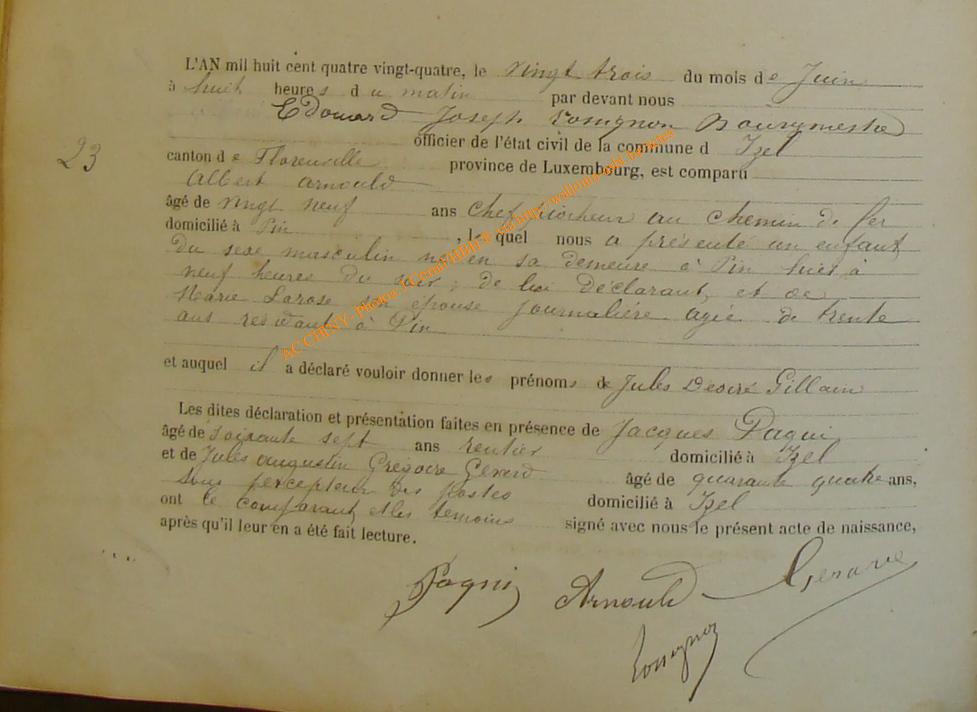 L'AN mil huit cent quatre vingt-quatre, le vingt trois du mois de Juin
à huit heures du matin par devant nous
Edouard Joseph Rossignon Bourgmestre
officier de l'état civil de la commune d Izel
23
canton de Florenville province de Luxembourg, est comparu
Albert Arnould
âgé de vingt neuf ans Chef piocheur au chemin de fer
domicilié à Pin, lequel nous a présenté un enfant
du sexe masculin né en sa demeure à Pin hier à
neuf heures du soir, de lui déclarant, et de
Marie Larose son épouse journalière agée de trente
ans résidant à Pin
et auquel il a déclaré vouloir donner les prénoms de Jules Desiré Gillain
Les dites déclaration et présentation faites en présence de Jacques Paqui
âgé de soixante sept ans rentier domicilié à Izel
et de Jules Augustin Grégoire Gerard âgé de quarante quatre ans,
Sous percepteur des postes domicilié à Izel
ont le comparant et les témoins signé avec nous le présent acte de naissance,
après qu'il leur en a été fait lecture.
Arnould
Rossignon